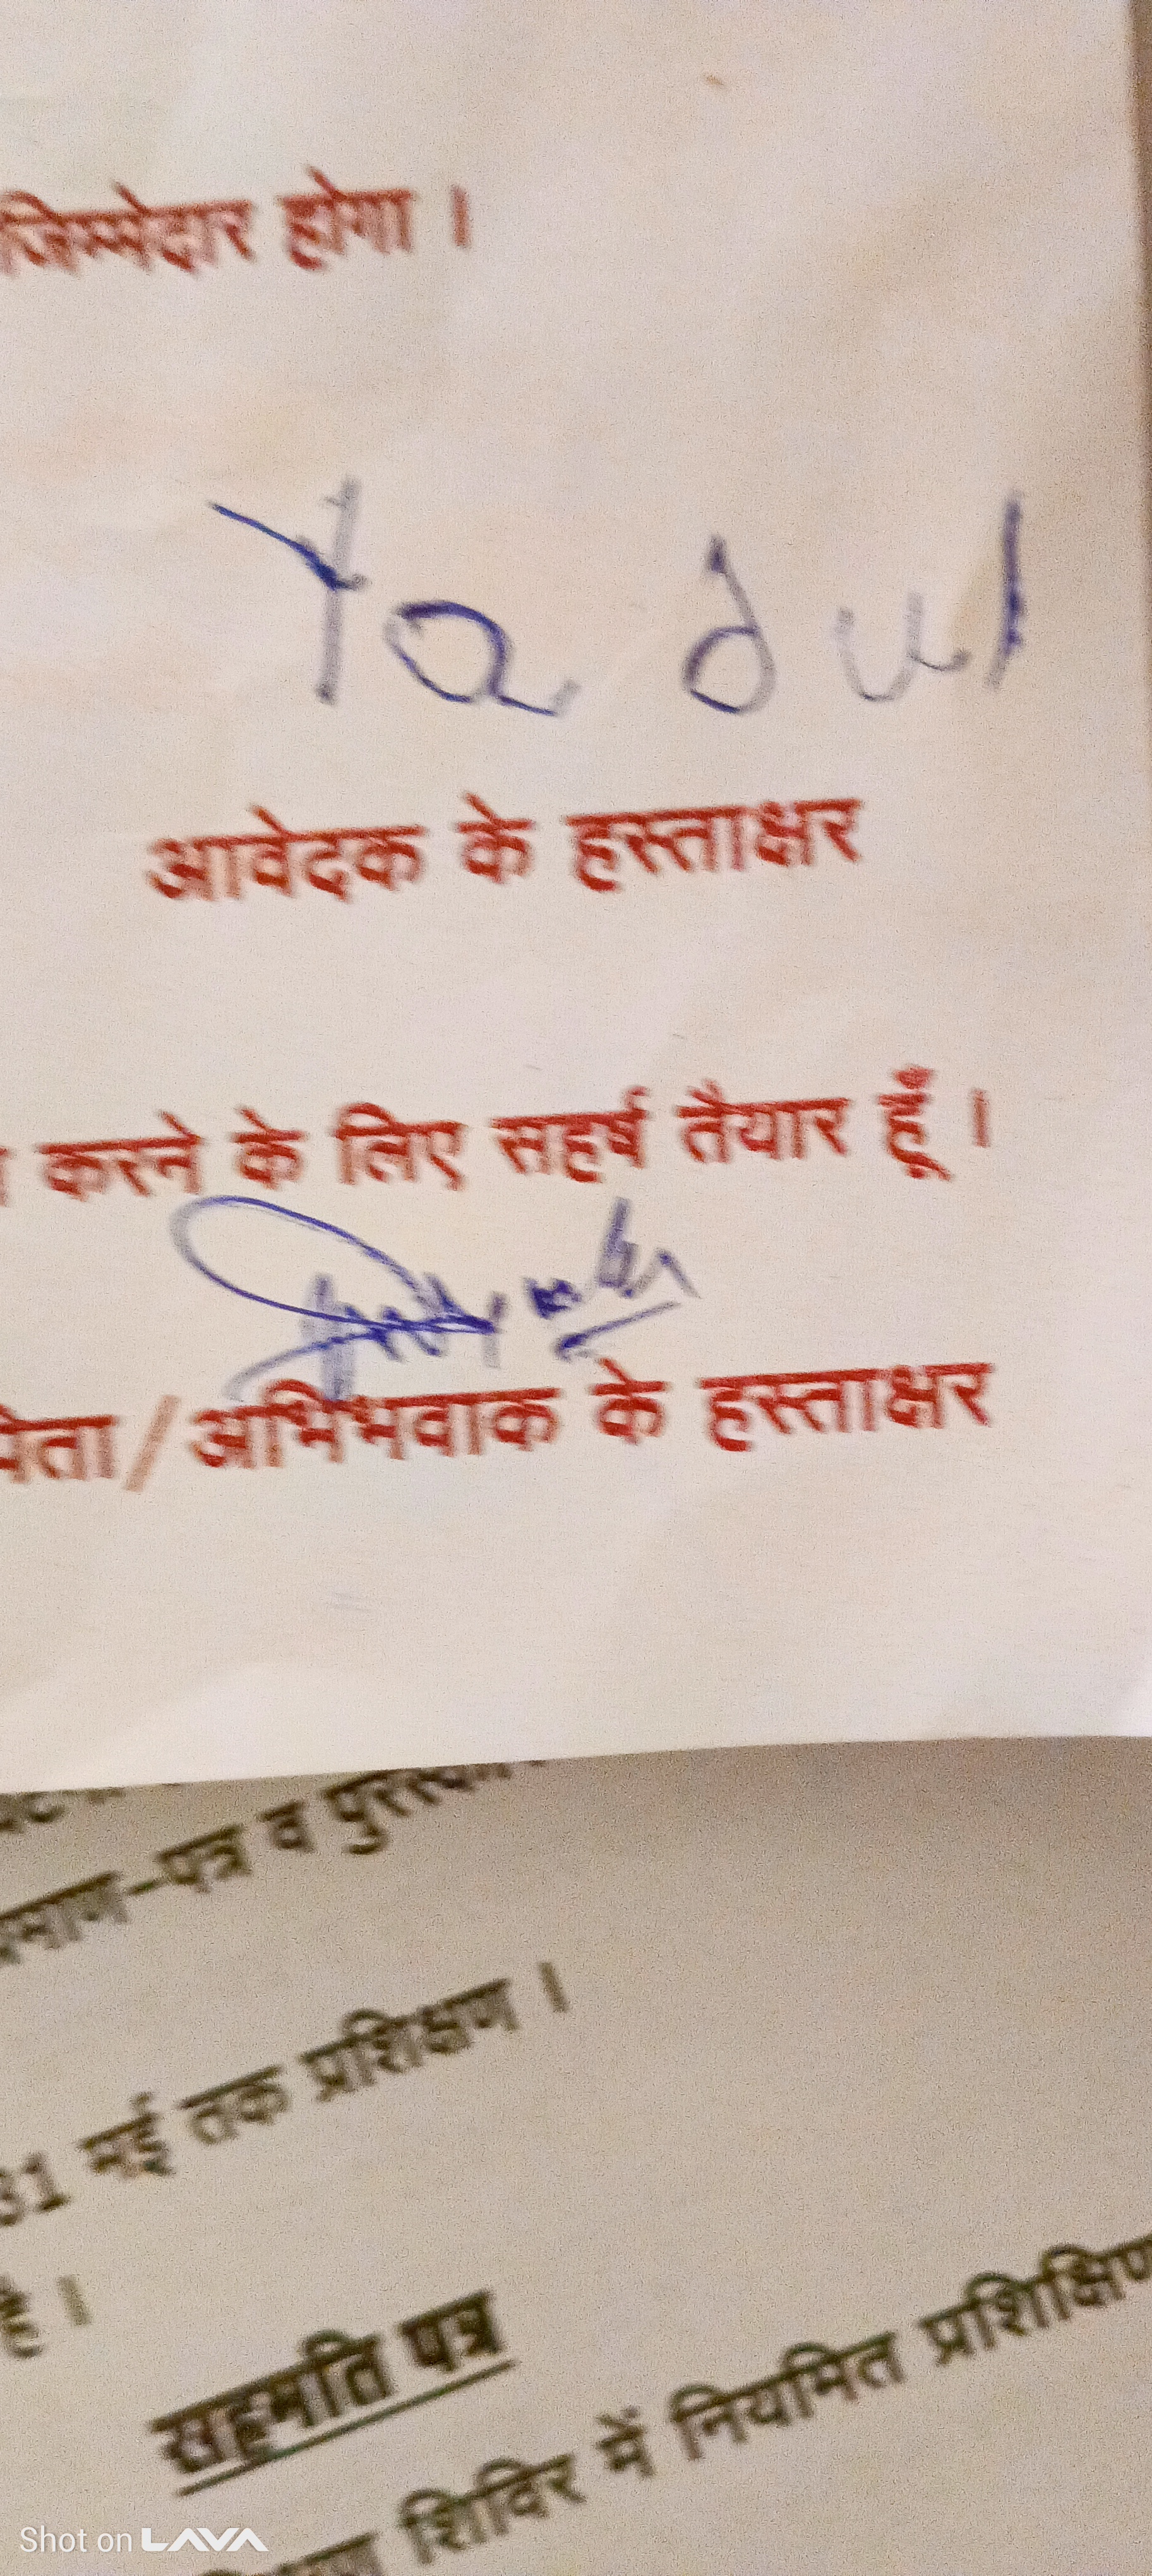 जिम्मेदार होगा ।
Ya dul
आवेदक के हस्ताक्षर
करने के लिए सहर्ष तैयार हूँ ।
पिता/अभिभवाक के हस्ताक्षर
प्रमाण-पत्र व
31 मई तक प्रशिक्षण ।
है ।
सहमति पत्र
शिविर में नियमित
Shot on LAVA